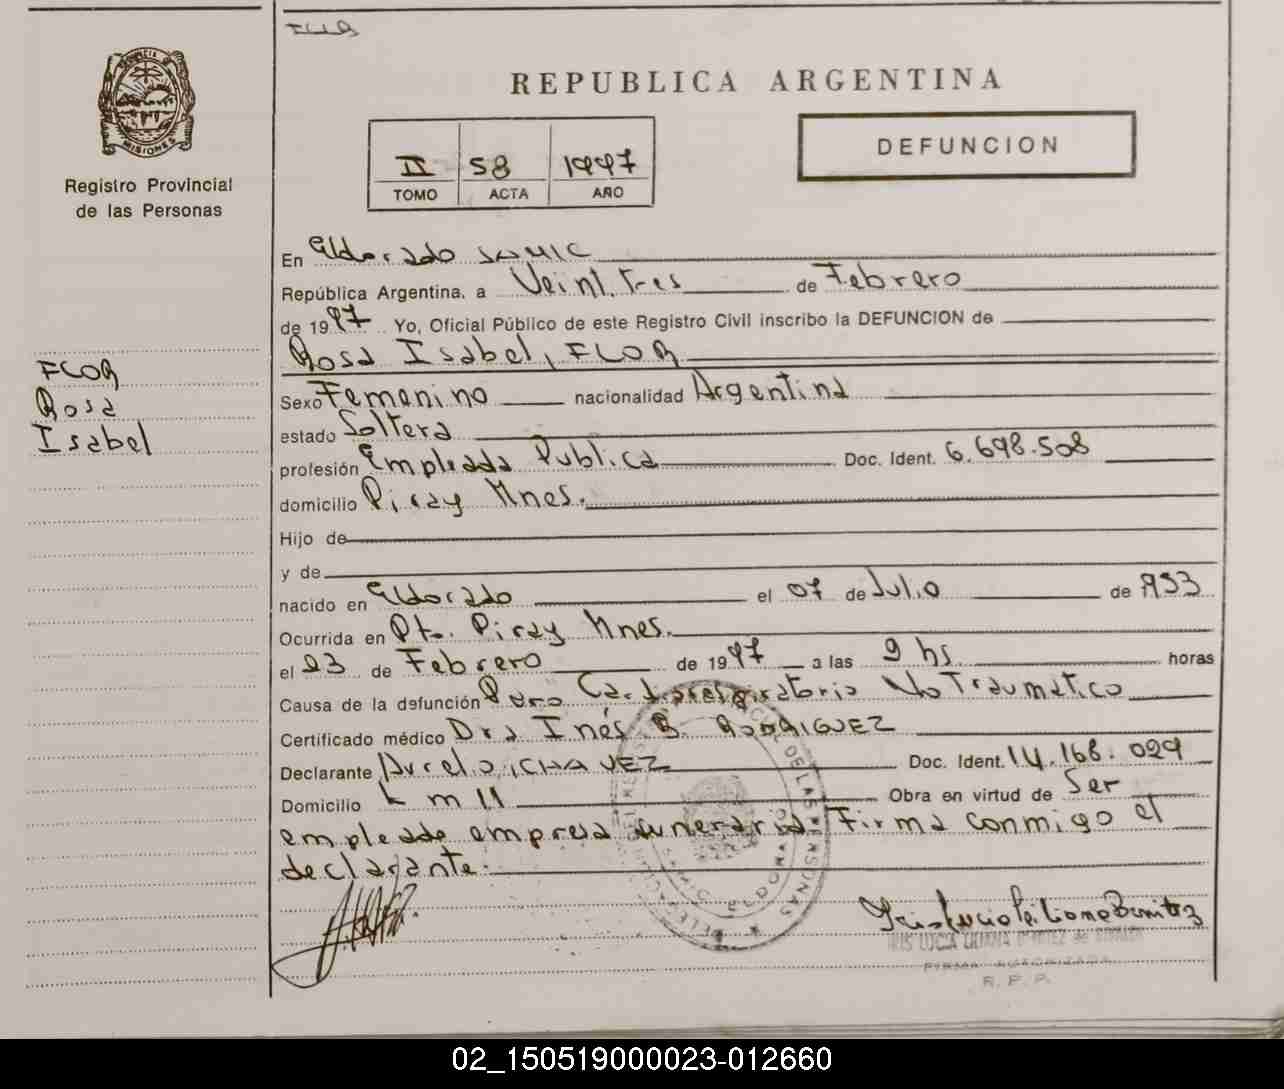 FLOR
REPUBLICA ARGENTINA
PROVINCIA DE
MISIONES
Registro Provincial
de las Personas
II 58 1997
TOMO ACTA AÑO
DEFUNCION
En Eldorado SAMIC
República Argentina, a Veintitres de Febrero
de 1997 Yo, Oficial Público de este Registro Civil inscribo la DEFUNCION de
Rosa Isabel, FLOR
FLOR
Rosa
Isabel
Sexo Femenino nacionalidad Argentina
estado Soltera
profesión Empleada Publica Doc. Ident. 6.698.508
domicilio Piray Mnes.
Hijo de
y de
nacido en Eldorado el 07 de Julio de 1953
Ocurrida en Pto. Piray Mnes.
el 23 de Febrero de 1997 a las 9 hs. horas
Causa de la defunción Paro Cardiorespiratorio No Traumatico
Certificado médico Dra Inés B. RODRIGUEZ
Declarante Aurelio, CHAVEZ Doc. Ident. 14.168.029
Domicilio km 11 Obra en virtud de Ser
empleado empresa funeraria. Firma conmigo el
declarante.
DE LAS PERSONAS
FIRMA AUTORIZADA
R. P. P.
02_150519000023-012660